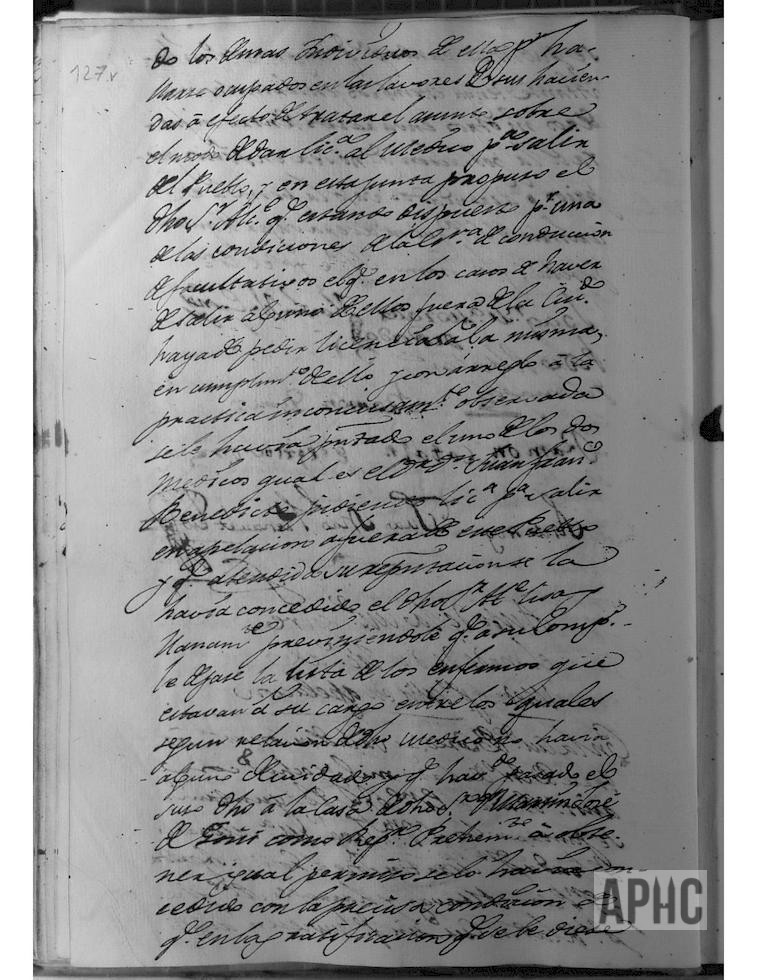 127.v
do los demas Individuos de ella pr. ha-
llarse ocupados en las lavores de sus hacien-
das à efecto de tratar el asunto sobre
el modo de dar lic.a al Medico p.a salir
del Pueblo, y en esta junta propuso el
dho S.r Alc.e q.e estando dispuesto p.r una
de las condiciones de la Es.ra de conduccion
de facultativos el q.e en los casos de haver
de salir alguno de ellos fuera de la Ciu.d
haya de pedir licencia à la misma,
en cumplim.to de ello y con arreglo à la
practica inconcusam.te observada
se le havia pñtado el uno de los dos
Medicos qual es el D.r d.n Juan Fran.co
Benedicto pidiendo lic.a p.a salir
en apelacion afuera de este Pueblo
y q.e atendida su reputacion se la
havia concedido el dho S.r Al.e lisa y
llanam.te previniendole q.e a su Comp.o
le dejase la lista de los enfermos que
estavan à su cargo entre los quales
segun relacion de dho Medico no havia
alguno de cuidado y q.e hav.do pasado el
suso dho à la casa de dho S.r
de Goñi como Reg.r Prehem.te à obte-
ner igual permiso se lo havia con-
cedido con la precisa condicion de
q.e en la gratificacion q.e se le diese
APHC